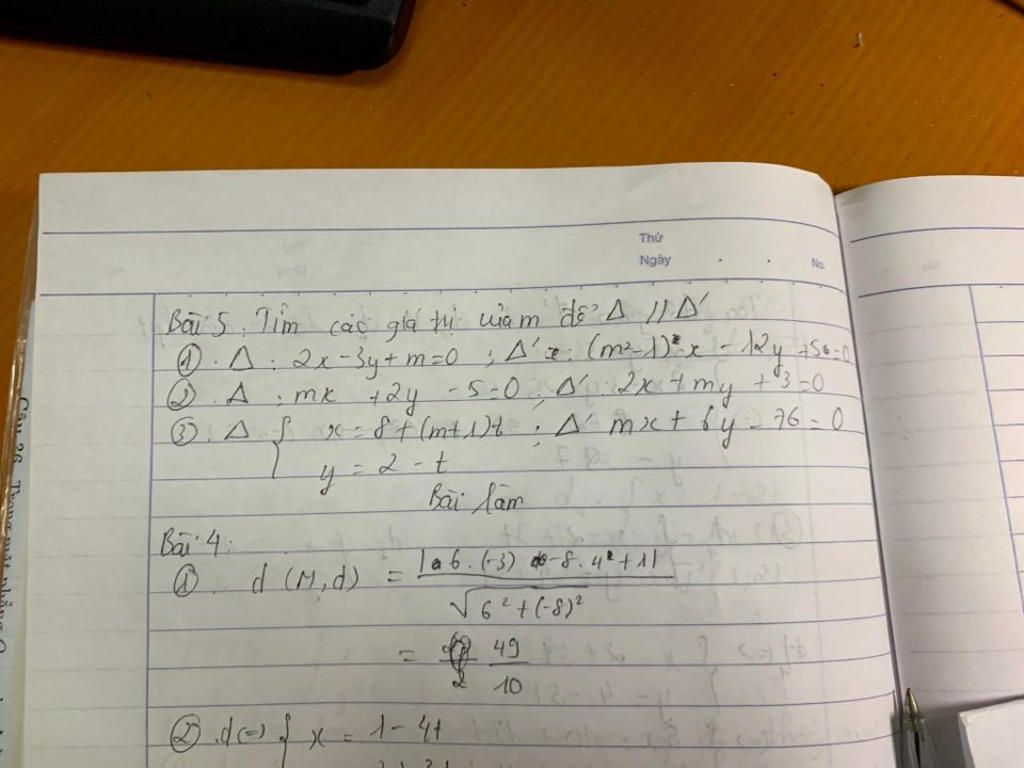 Thứ
Ngày
No.
Bài 5: Tìm các giá trị của m để Δ // Δ'
① . Δ : 2x - 3y + m = 0 ; Δ' : (m² - 1) x - 12y + 50 = 0
② . Δ : mx + 2y - 5 = 0 ; Δ' : 2x + my + 3 = 0
③ . Δ { x = 8 + (m+1)t ; Δ' mx + 6y - 76 = 0
y = 2 - t
Bài làm
Bài 4:
① d (M, d) = |6 . (-3) - 8 . 4 + 1|
√6² + (-8)²
= 49
10
② . d (=) { x = 1 - 4t